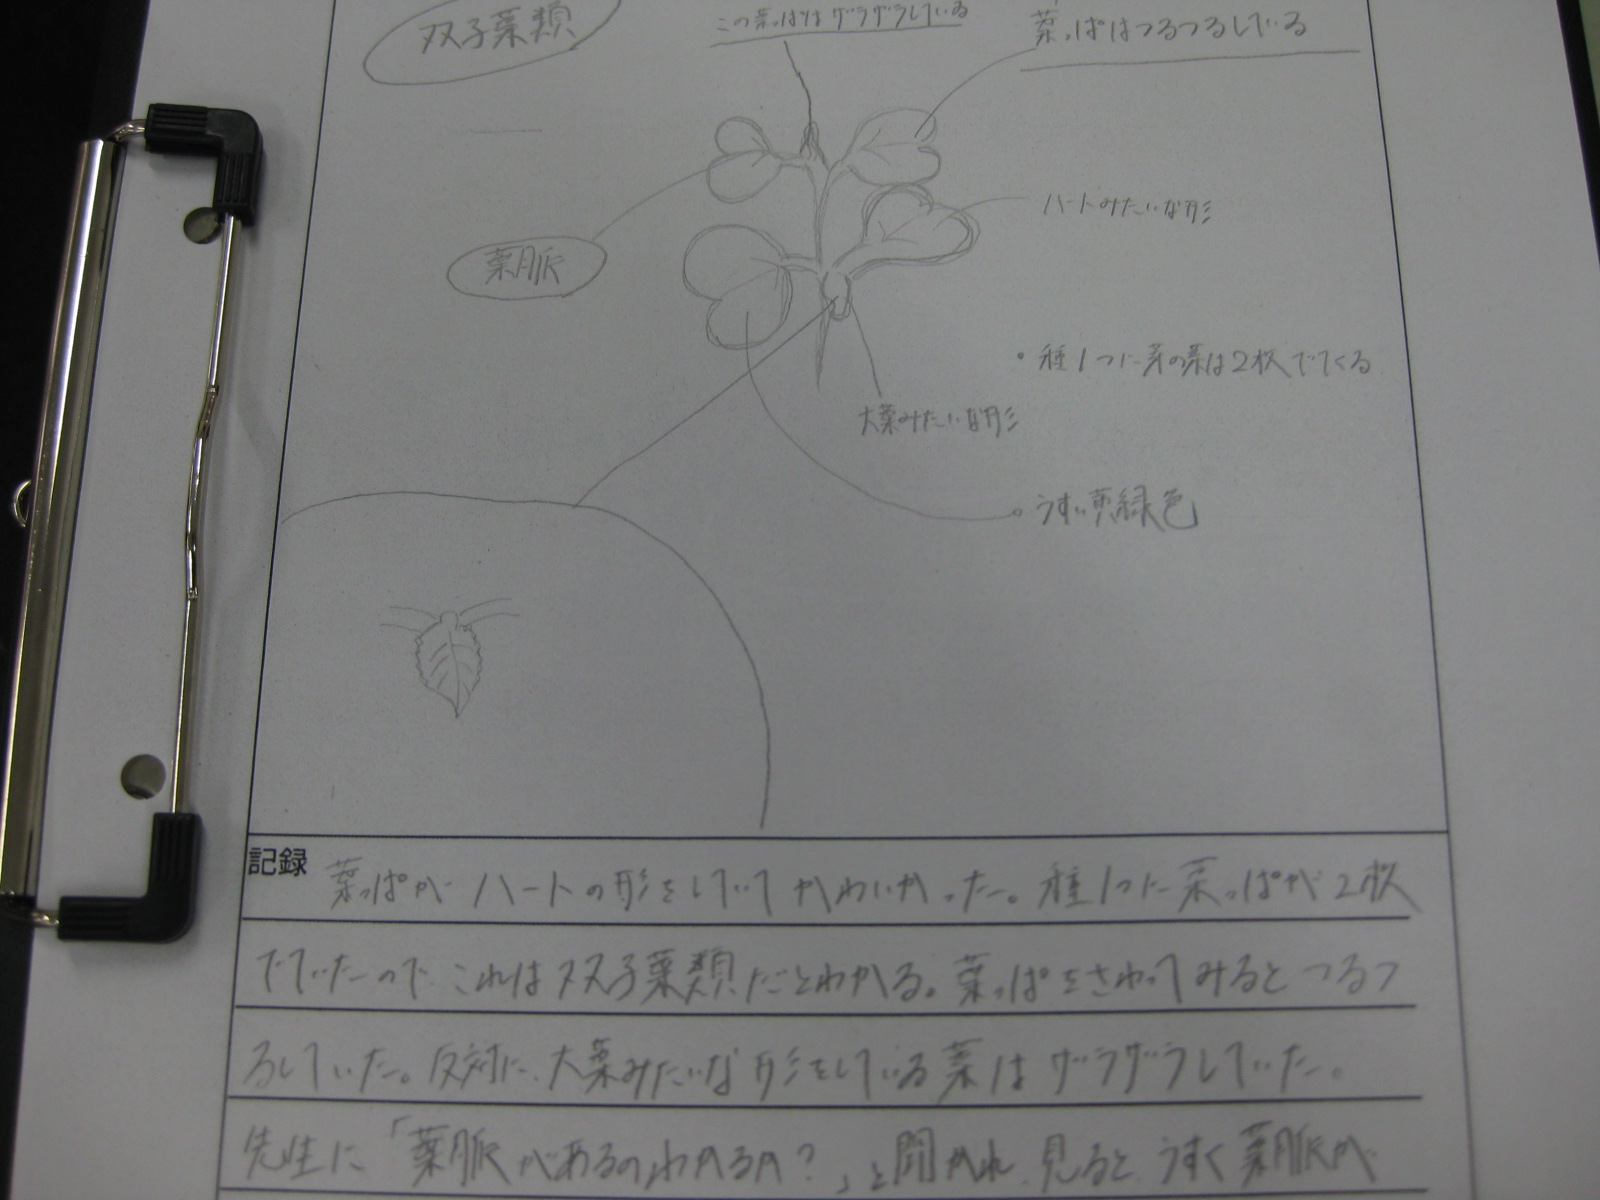 双子葉類
この葉っぱはザラザラしている
葉っぱはつるつるしている
ハートみたいな形
葉脈
・種1つに芽の葉は2枚でてくる
大葉みたいな形
うすい黄緑色
記録 葉っぱがハートの形をしていてかわいかった。種1つに葉っぱが2枚
でていたので、これは双子葉類だとわかる。葉っぱをさわってみるとつるつ
るしていた。反対に、大葉みたいな形をしている葉はザラザラしていた。
先生に「葉脈があるのわかるか?」と聞かれ、見ると、うすく葉脈が